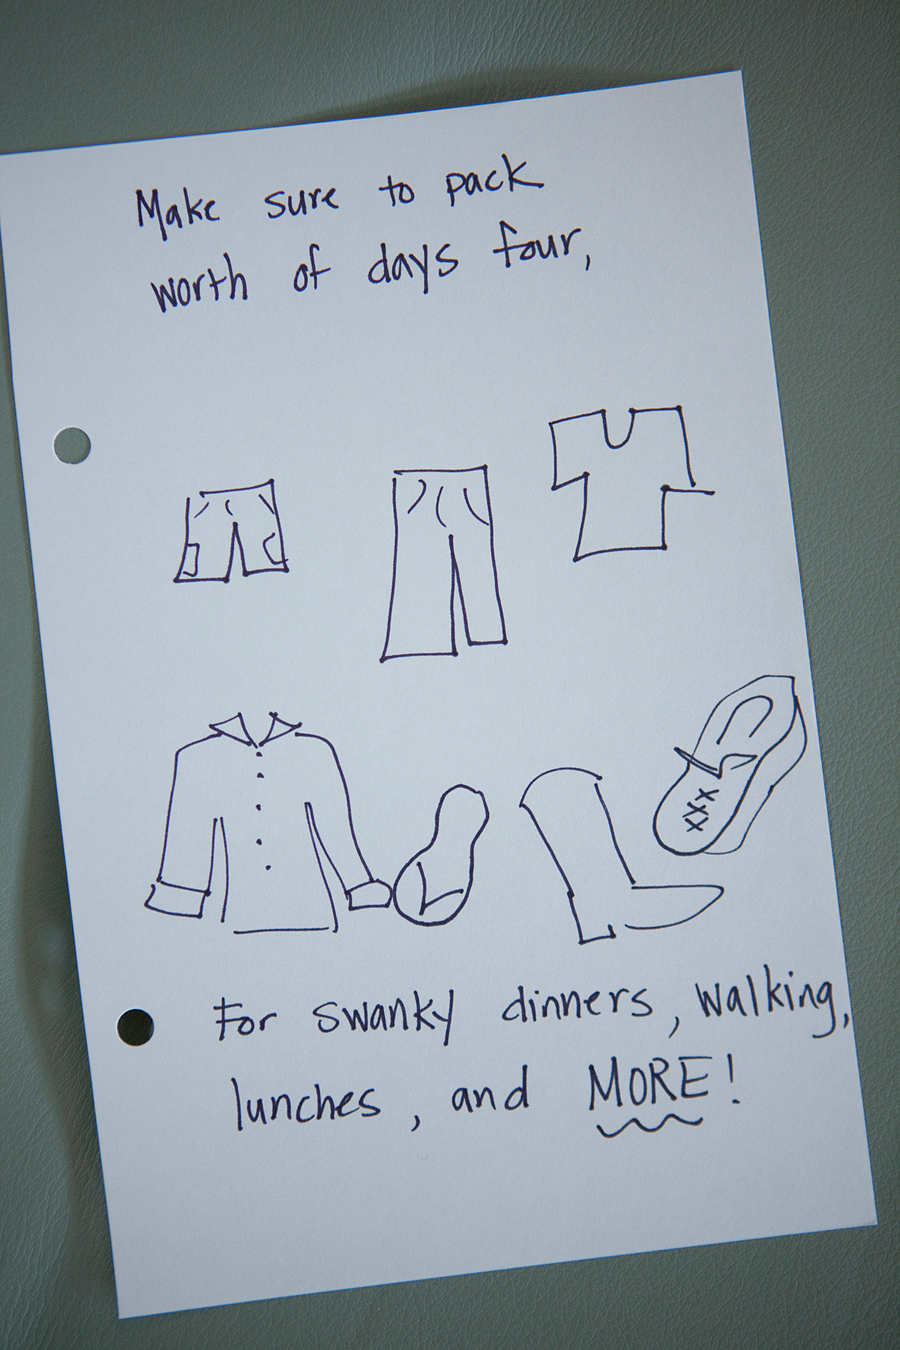 Make sure to pack
worth of days four,
For swanky dinners, walking,
lunches, and MORE!